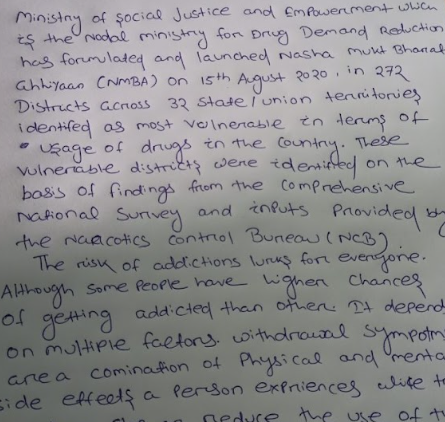 Ministry of Social Justice and Empowerment which
is the nodal ministry for Drug Demand Reduction
has formulated and launched Nasha mukt Bharat
Abhiyaan (NMBA) on 15th August 2020, in 272
Districts across 32 State/Union territories
identifed as most vulnerable in terms of
usage of drugs in the country. These
vulnerable districts were identified on the
basis of findings from the Comprehensive
National Survey and inputs Provided by
the Narcotics Control Bureau (NCB).
The risk of addictions lurks for everyone.
Although some People have higher chances
of getting addicted than other. It depend
on multiple factors. withdrawal sympotm
are a comination of Physical and menta
side effects a person expriences
reduce the use of